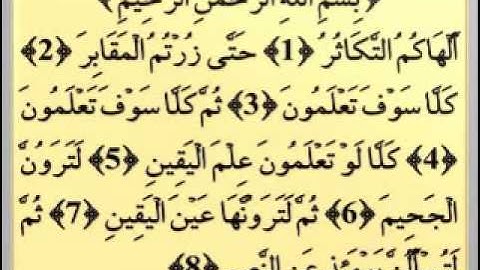 ﴿بِسْمِ اللهِ الرَّحْمَنِ الرَّحِيمِ﴾
أَلْهَاكُمُ التَّكَاثُرُ ﴿1﴾ حَتَّى زُرْتُمُ الْمَقَابِرَ ﴿2﴾
كَلَّا سَوْفَ تَعْلَمُونَ ﴿3﴾ ثُمَّ كَلَّا سَوْفَ تَعْلَمُونَ
﴿4﴾ كَلَّا لَوْ تَعْلَمُونَ عِلْمَ الْيَقِينِ ﴿5﴾ لَتَرَوُنَّ
الْجَحِيمَ ﴿6﴾ ثُمَّ لَتَرَوُنَّهَا عَيْنَ الْيَقِينِ ﴿7﴾ ثُمَّ
عَنِ ﴿8﴾